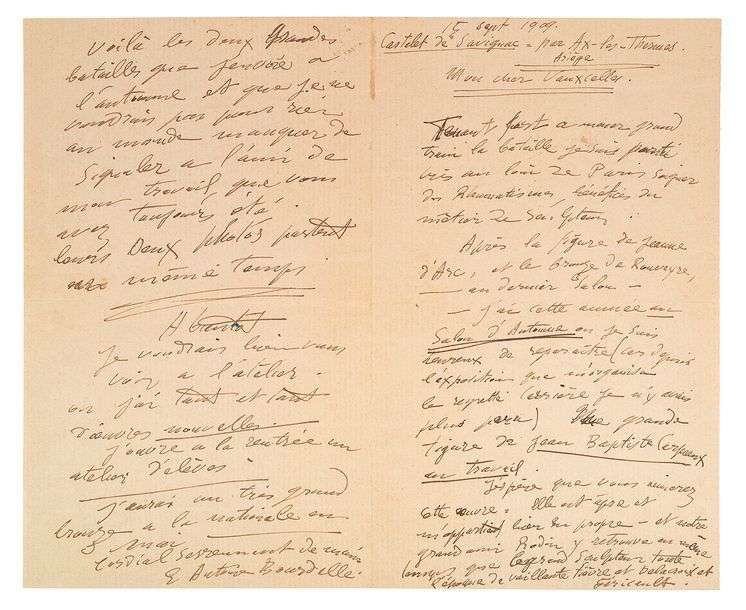 15 sept 1909.
Castelet de Savignac - par Ax-les-Thermes.
Ariège
Mon cher Vauxcelles.
a mener grand
train la bataille je suis parti
très au loin de Paris soigner
des Rhumatismes, bénéfices du
métier de sculpteur.
Après la figure de Jeanne
d'Arc, et le bronze de Rouveyre,
— au dernier Salon —
— j'ai cette année au
Salon d'Automne où je suis
heureux de reparaitre (car depuis
l'exposition que m'organisa
le regretté Carrière je n'y avais
plus paru) Une grande
figure de Jean Baptiste Carpeaux
au travail.
J'espère que vous aimerez
cette œuvre. Elle est âpre et
m'appartient bien en propre - et notre
grand ami Rodin y retrouve en même
temps que le grand sculpteur toute
l'époque de vaillante fièvre et
Géricault.
Voilà les deux Grandes
batailles que j'envoie à
l'automne et que je ne
voudrais pas pour rien
au monde manquer de
signaler a l'ami de
mon travail, que vous
avez toujours été.
leurs Deux photos partent
en même temps.
A bientot
Je voudrais bien vous
voir a l'atelier.
ou j'ai tant et tant
d'œuvres nouvelles.
j'ouvre a la rentrée un
atelier d'elèves.
j'aurai un très grand
bronze a la nationale en
mai
Cordial serrement de mains
E Antoine Bourdelle.